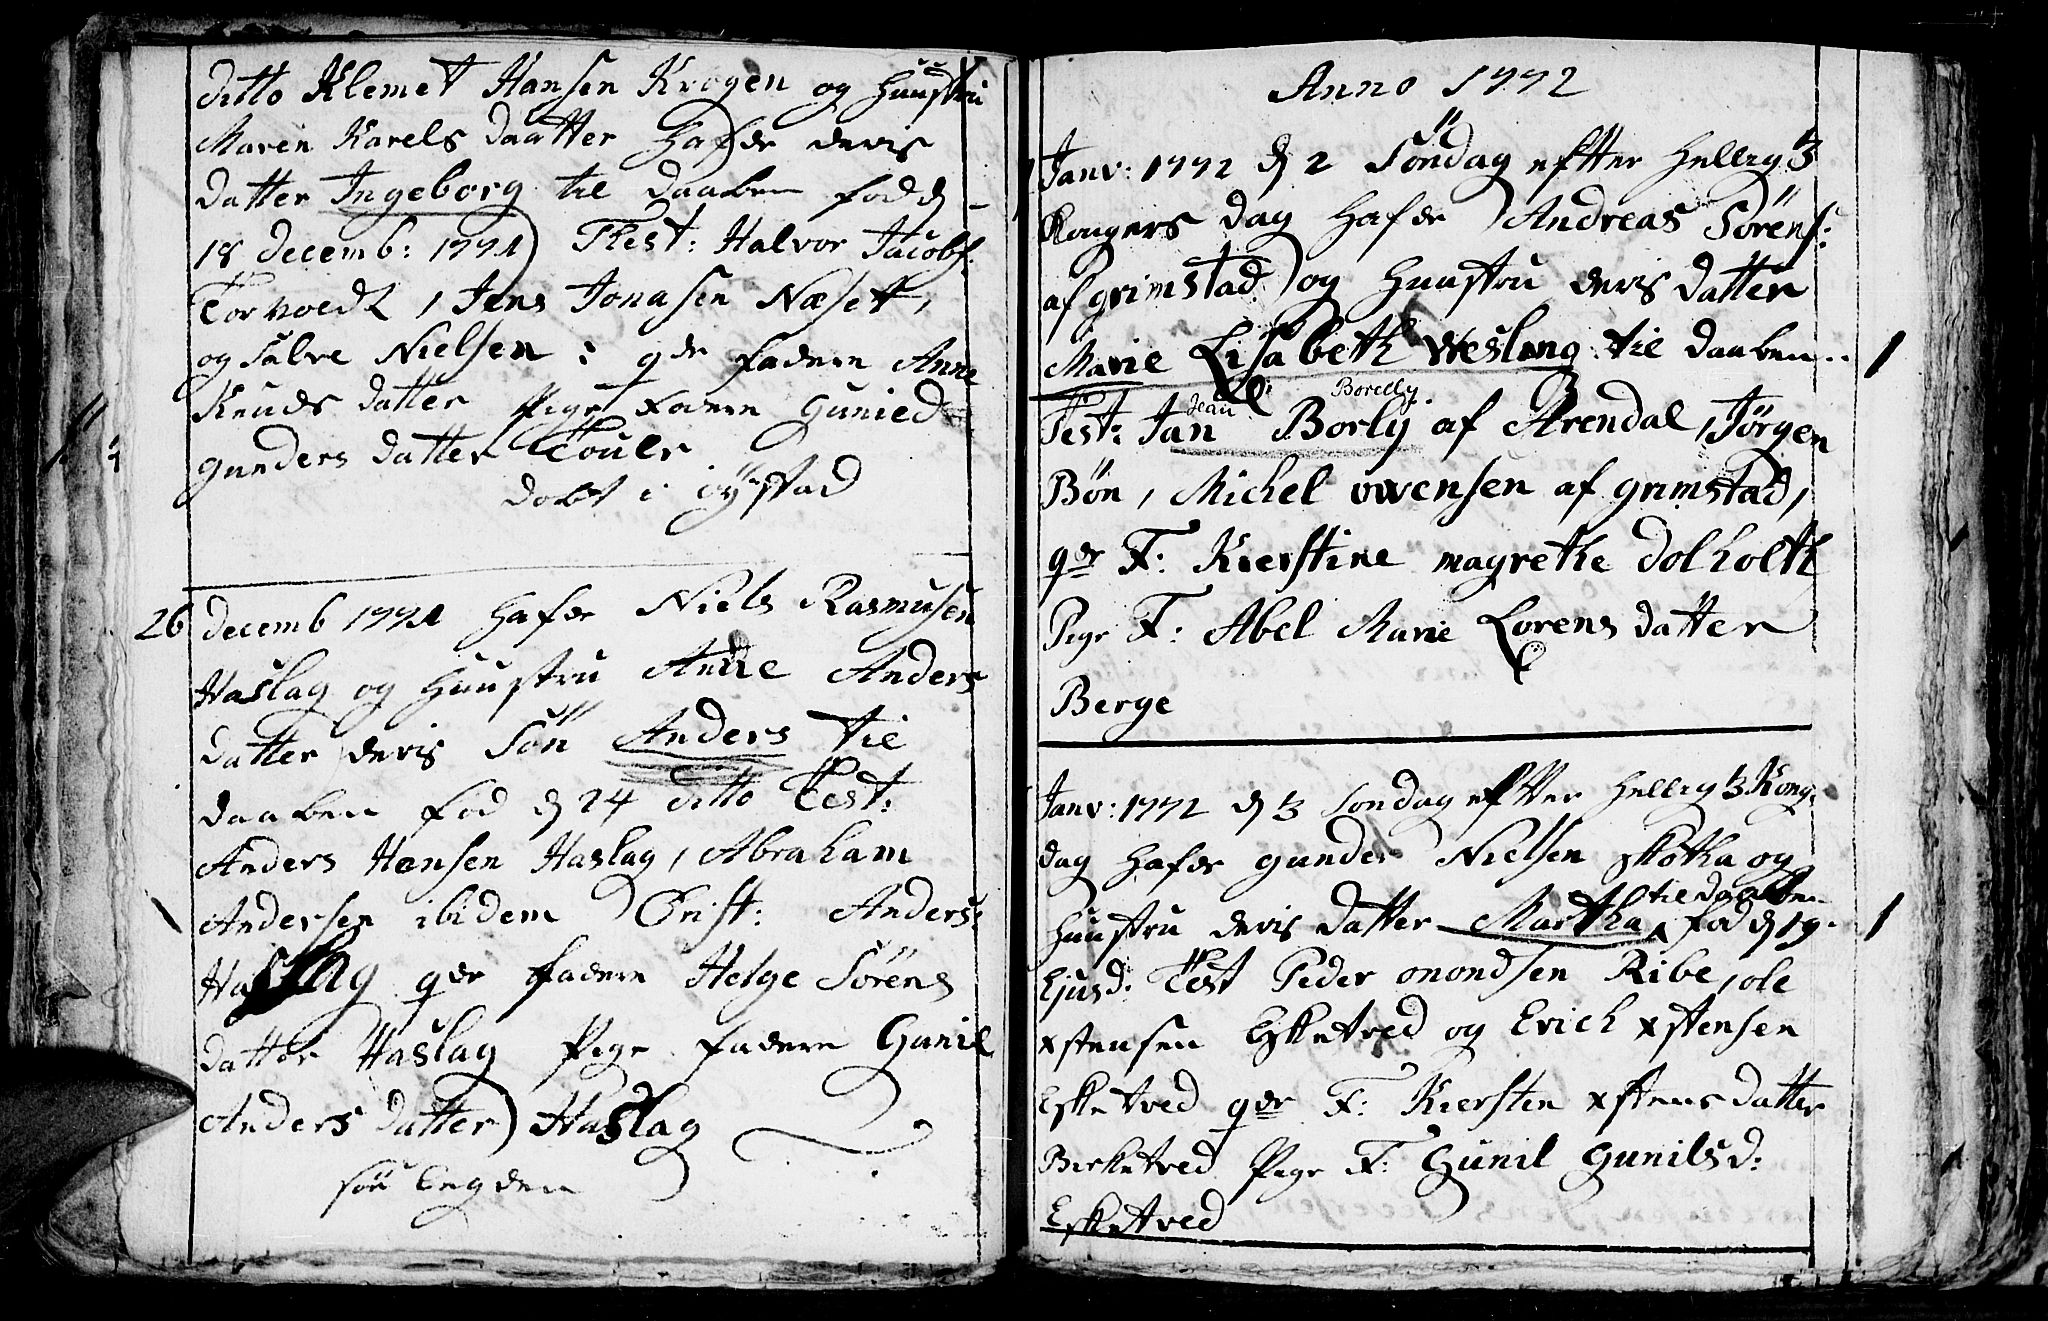 Ditto Klemet Hansen Krogen og Huustru
Maren Karels daatter hafde deris
datter Ingeborg til daaben fød d
18 decemb: 1771 Test: Halvor Jacobs:
Torvoldt, Jens Jonasen Næset,
og Salve Nielsen: gde fadere Anne
Knuds datter Pige Fadere Gunied
Gunders datter
døbt i Øÿestad
26 decemb 1771 hafde Niels Rasmusen
Haslag og Huustru Anne Anders
datter deris Søn Anders til
daaben fød d 24 ditto Test:
Anders Hansen Haslag, Abraham
Andersen ibidem Christ: Anders:
Haslag gde fadere Helge Sørens
datter Haslag Pige fadere Gunil
Anders datter Haslag
Anno 1772
Janv: 1772 d 2 Søndag eftter Hellig 3
Kongers dag hafde Andreas Sørens:
af Grimstad og Huustru deris datter
Marie Lisabeth Wesling til daaben
Jean Borelly
Test: Jan Borly af Arendal, Jørgen
Bøn, Michel owensen af grimstad,
gde F: Kierstine magrethe Dolholth
Pige F: Abel Marie Lorens datter
Berge
1
Janv: 1772 d 3 Søndag eftter Hellig 3 Kong:
dag hafde gunder Nielsen og
til daaben
Huustru deris datter Martha fød d 19
Ejusd: Test Peder onondsen Ribe, ole
xstensen Esketved og Erich xstensen
Esketved gde F: Kiersten xstens datter
Birketved Pige F: Gunil Gunilsd:
Esketved
1